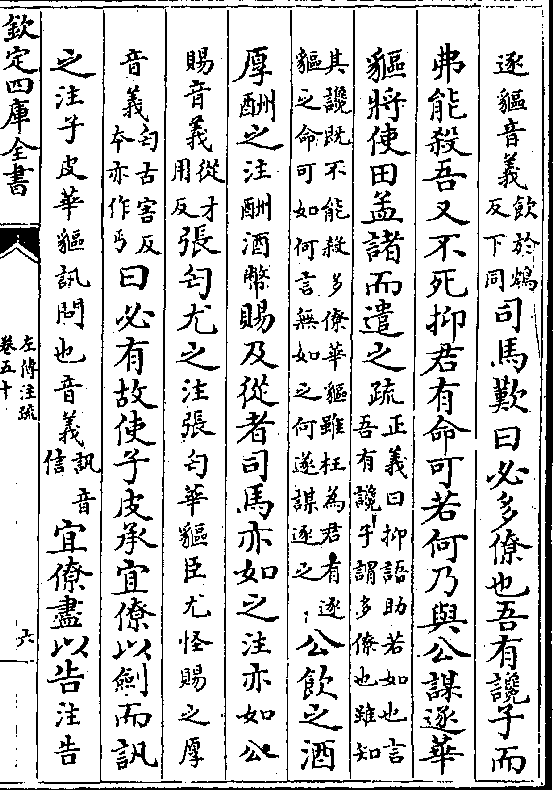 逐貙音義飲於鴆反下同司馬歎曰必多僚也吾有讒子而
弗能殺吾又不死抑君有命可若何乃與公謀逐華
貙將使田孟諸而遣之疏正義曰抑語助若如也言吾有讒子謂多僚也雖知
其讒既不能殺多僚華貙雖枉為君有逐貙之命可如何言無如之何遂謀逐之公飲之酒
厚酬之注酬酒幣賜及從者司馬亦如之注亦如公
賜音義從才用反張匄尤之注張匄華貙臣尤怪賜之厚
音義匄古害反本亦作丐曰必有故使子皮承宜僚以劍而訊
之注子皮華貙訊問也音義訊音信宜僚盡以告注告
欽定四庫全書
左傳注疏
卷五十
六